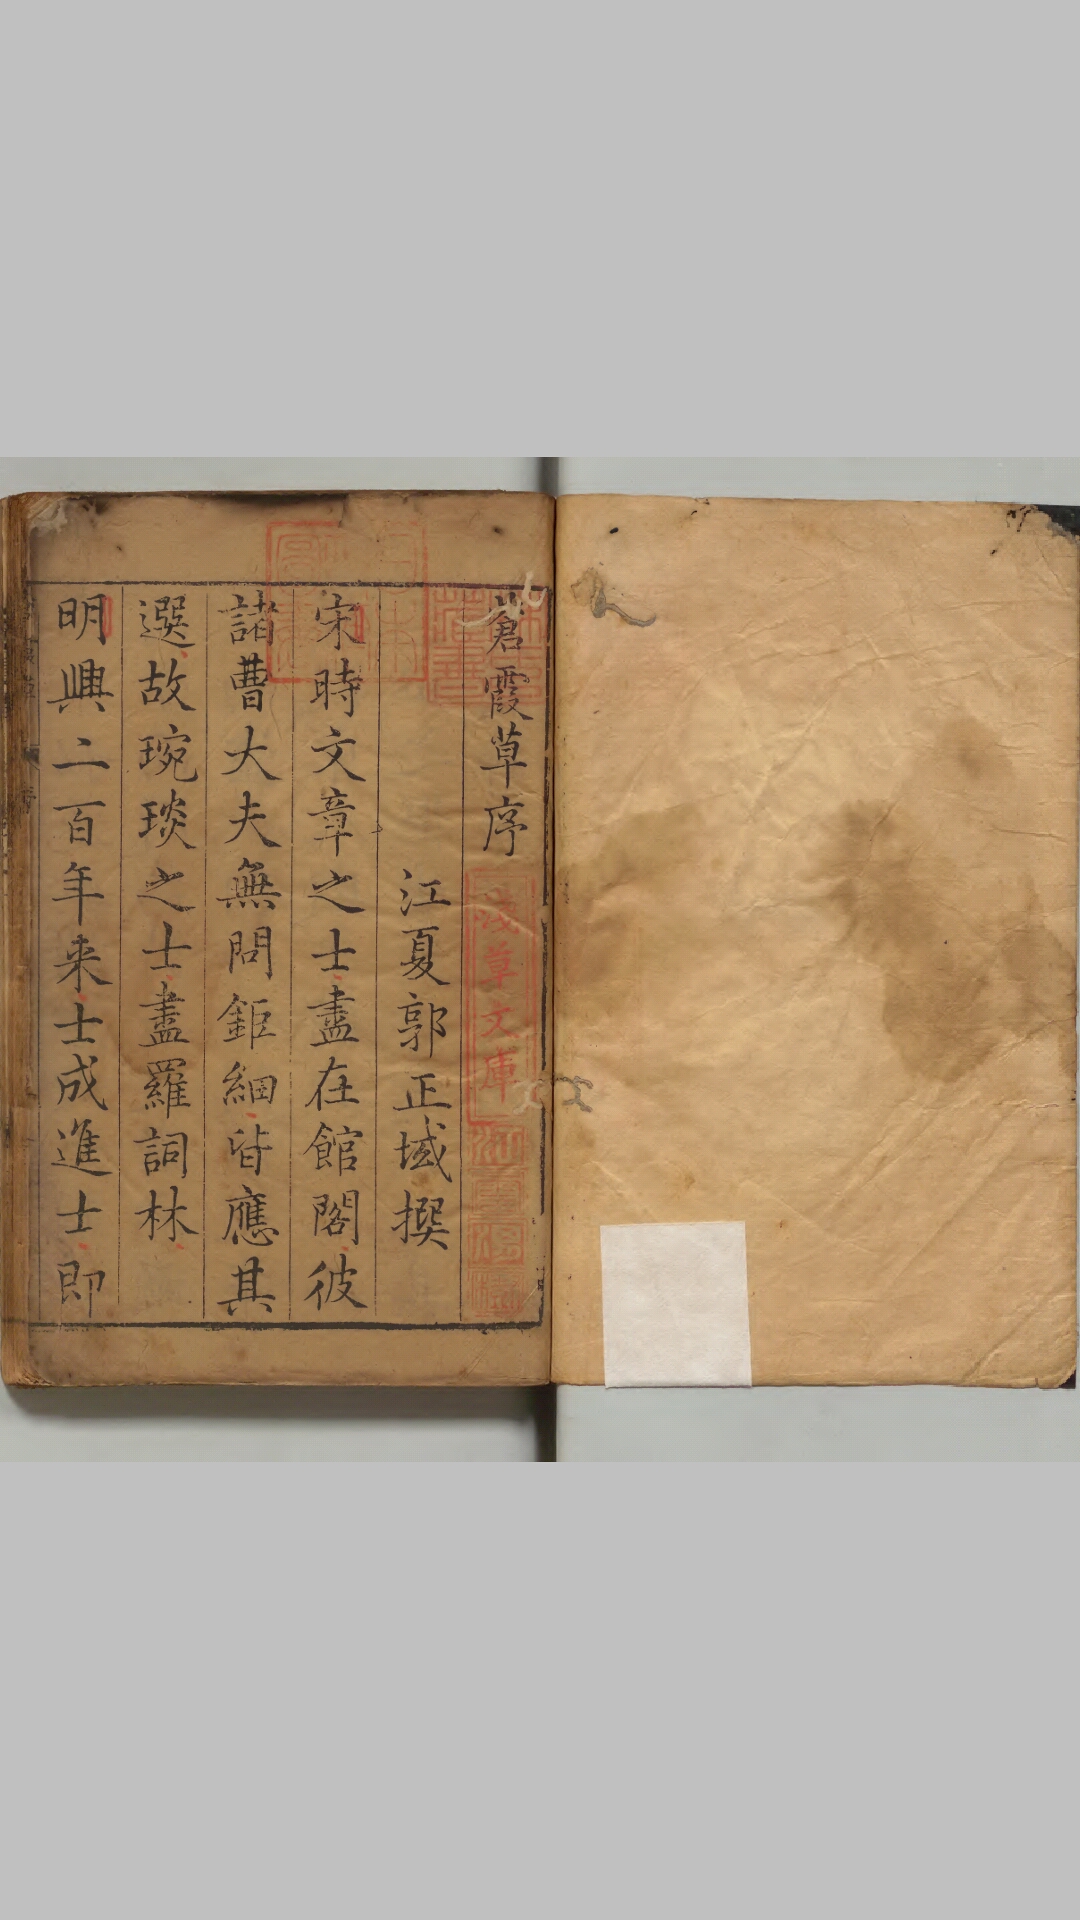 蒼霞草序
江夏郭正域撰
宋時文章之士盡在館閣彼
諸曹大夫無問鉅細皆應其
選故琬琰之士盡羅詞林
明興二百年来士成進士即
淺草文庫